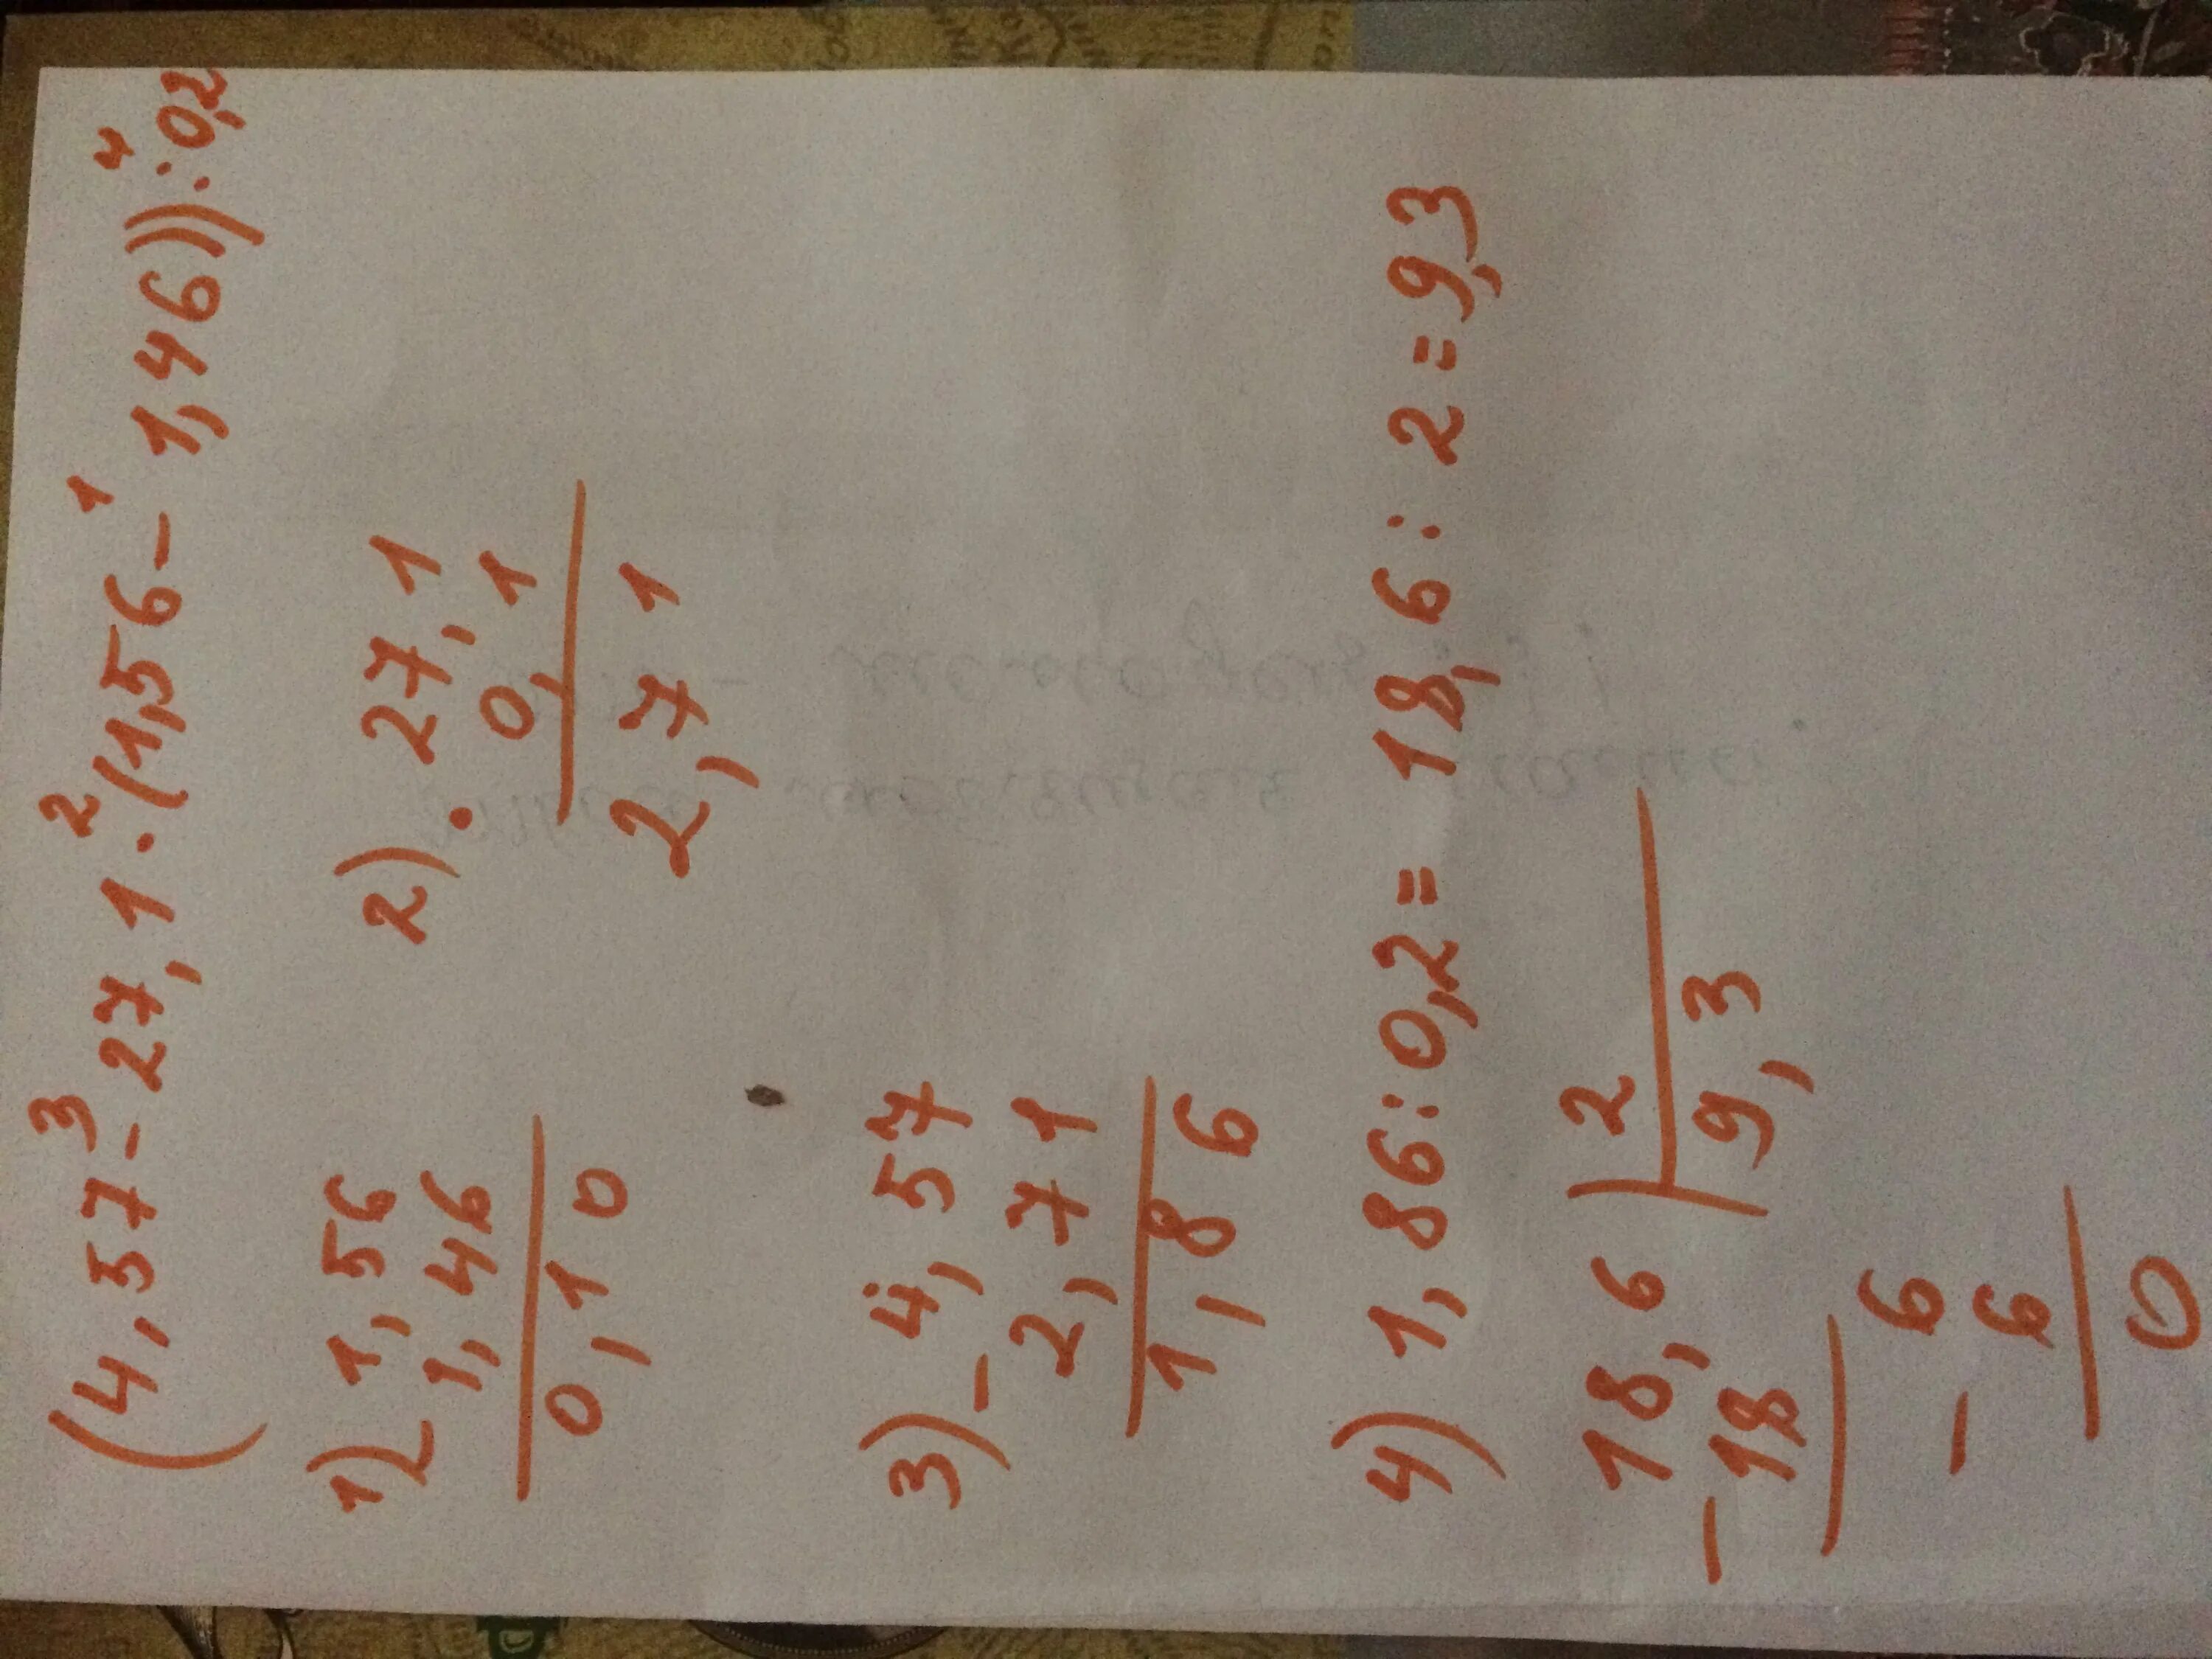 (4,57-³27,1·²(1,56-¹1,46)):⁴0,2
1) - 1,56
1,46
0,10
2) · 27,1
0,1
2,71
3) - 4,57
2,71
1,86
4) 1,86:0,2= 18,6:2=9,3
18,6 | 2
-18 | 9,3
6
- 6
0